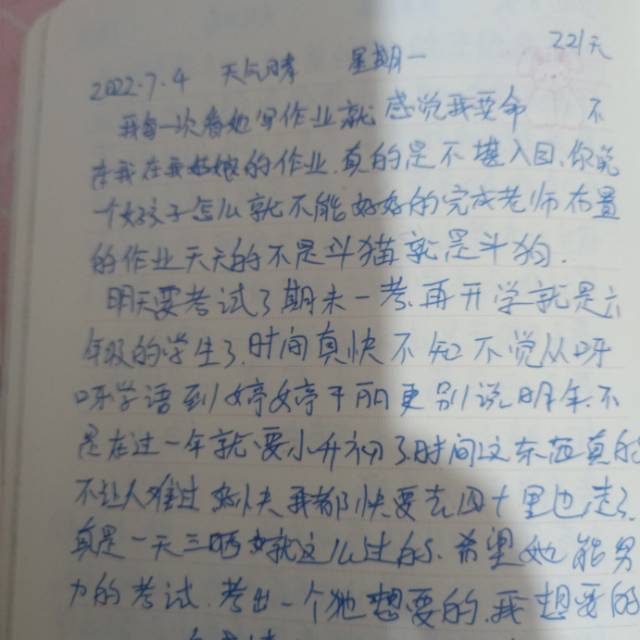 2022.7.4 天气晴 星期一 221天
我每一次看她写作业就感说我要命 不
我在 的作业.真的是不堪入目,你说
一个女孩子怎么就不能好好的完成老师布置
的作业天天的不是斗猫就是斗狗.
明天要考试了期末一考,再开学就是六
年级的学生了,时间真快不知不说从呀
呀学语到婷婷于丽更别说明年不
是在过一年就要小升初了时间这东西真的
不让人难过 我都快要去四十里也走了.
真是一天三晒 就这么过的.希望她能努
力的考试.考出一个她想要的.我想要的